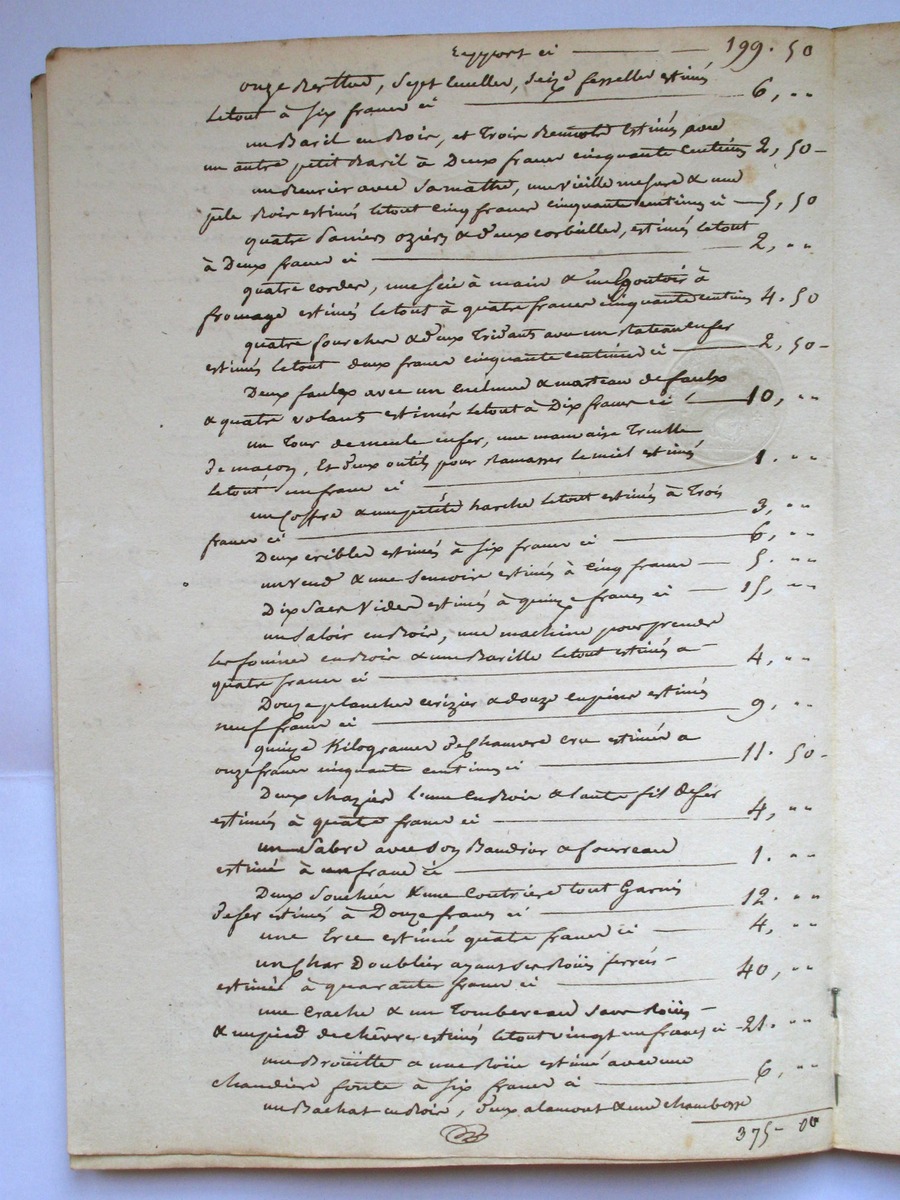 Report ci — — 199. 50
onze , sept cuiller, seize fesselles estimés
le tout à six francs ci — 6, ""
un Baril en Bois, et trois estimés avec
un autre petit Baril à Deux francs cinquante centimes 2, 50 -
un avec Samatte, une vieille mesure & une
pele Bois estimés le tout cinq francs cinquante centimes ci — 5, 50
quatre paniers oziers & deux corbeilles, estimés le tout
à Deux francs ci — 2, ""
quatre cordes, une scie à main & un Egoutoir à
fromage estimés le tout à quatre francs cinquante centimes 4. 50
quatre fourches & deux Tridants avec un Rateau en fer
estimés le tout deux francs cinquante centimes ci — 2, 50 -
Deux faulx avec un enclume & marteau de faulx
& quatre volants estimés le tout à Dix francs ci — 10, ""
un Tour de meule en fer, une mauvaise Truelle
de maçon, et deux outils pour Ramasser le miel estimés
le tout un franc ci — 1. ""
un Coffre & une petite harche le tout estimés à Trois
francs ci — 3, ""
Deux cribles estimés à six francs ci — 6, ""
un & une estimés à cinq francs — 5. ""
Dix sacs vides estimés à quinze francs ci — 15, ""
un saloir en Bois, une machine pour prendre
les fouines en Bois & une Barille le tout estimés a -
quatre francs ci — 4, ""
Douze planches cerizier & douze en pins estimés
neuf francs ci — 9, ""
quinze Kilogrames de Chanvre cru estimés a
onze francs cinquante centimes ci — 11. 50 -
Deux chaziers l'une en Bois & l'autre fil de fer
estimés à quatre francs ci — 4, ""
un Sabre avec son Baudrier & fourreau
estimé à un franc ci — 1. ""
Deux Souchées & une Coutriere tout Garnis
de fer estimés à Douze francs ci — 12. ""
une Erce estimée quatre francs ci — 4, ""
un Char Doublier ayant ses Roües ferrées -
estimée à quarante francs ci — 40, ""
une Crache & un Tombereau sans Roües -
& un pied de chèvre estimés le tout vingt un francs ci - 21. ""
une Broüette & une Roüe estimé avec une
chaudière fonte à six francs ci — 6, ""
un Bachat en Bois, deux & une
375 - 00